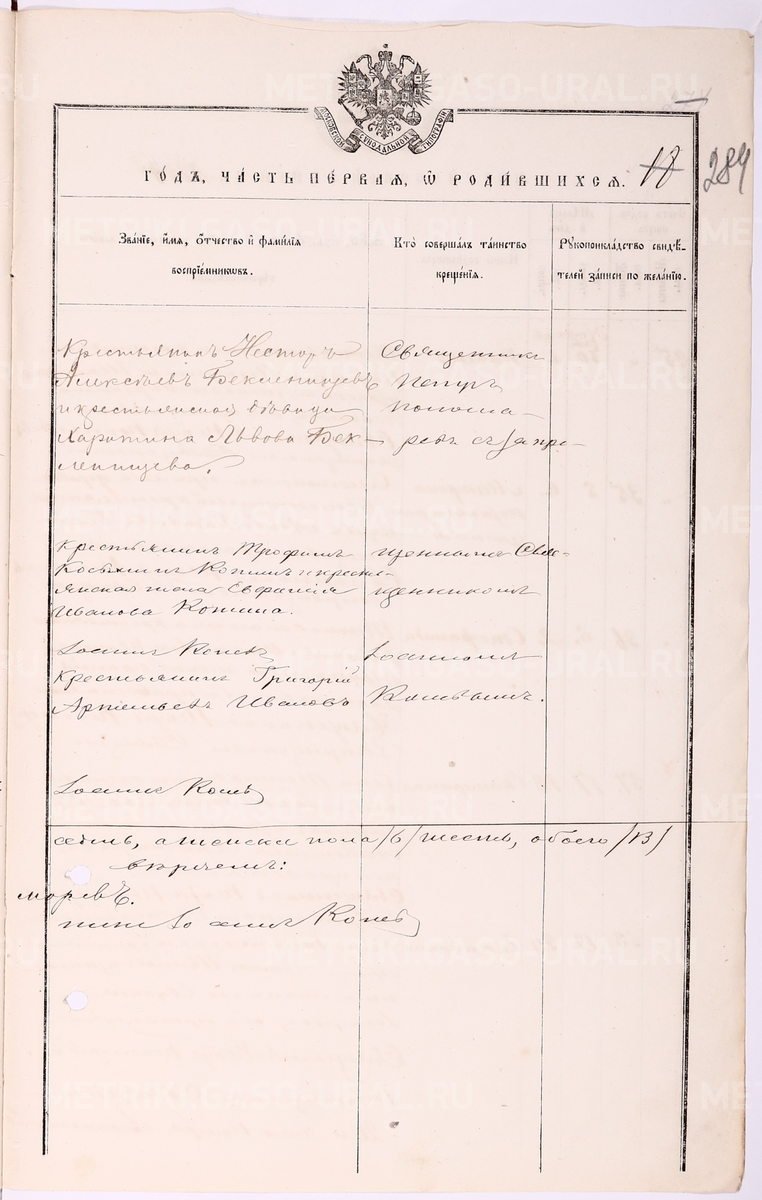 МОСКОВСКОЙ СѴНОДАЛЬНОЙ ТИПОГРАФІИ
ГО́ДЪ, ЧА́СТЬ ПЕ́РВАѦ, Ѡ҆ РОДИ́ВШИХСѦ.
18
289
Зва́нїе, и҆́мѧ, ѻ҆́тчество и҆ фами́лїѧ
воспрїе́мникѡвъ.
Кто̀ соверша́лъ та́инство
креще́нїѧ.
Рꙋкоприкла́дство свидѣ́-
телей за́писи по жела́нїю.
Крестьянинъ Несторъ
Алексѣевъ Бекленищевъ
и крестьянская вдовица
Харитина Львова Бек-
ленищева.
Священникъ
Петръ
Понома-
ревъ съ запре-
Крестьянинъ Трофимъ
Космин Копинъ и кресть-
янская жена Евфалія
Иванова Копина.
щеннымъ Свя-
щенникомъ
Іоаннъ Копевъ
Крестьянинъ Григорій
Артемьевъ Ивановъ
Іоанномъ
Копевымъ.
Іоаннъ Копевъ
седмь, а женска пола /6/ шесть, обоего /13/
вкрачемъ:
моревъ.
никъ Іоаннъ Копевъ
METRIKI.GASO-URAL.RU